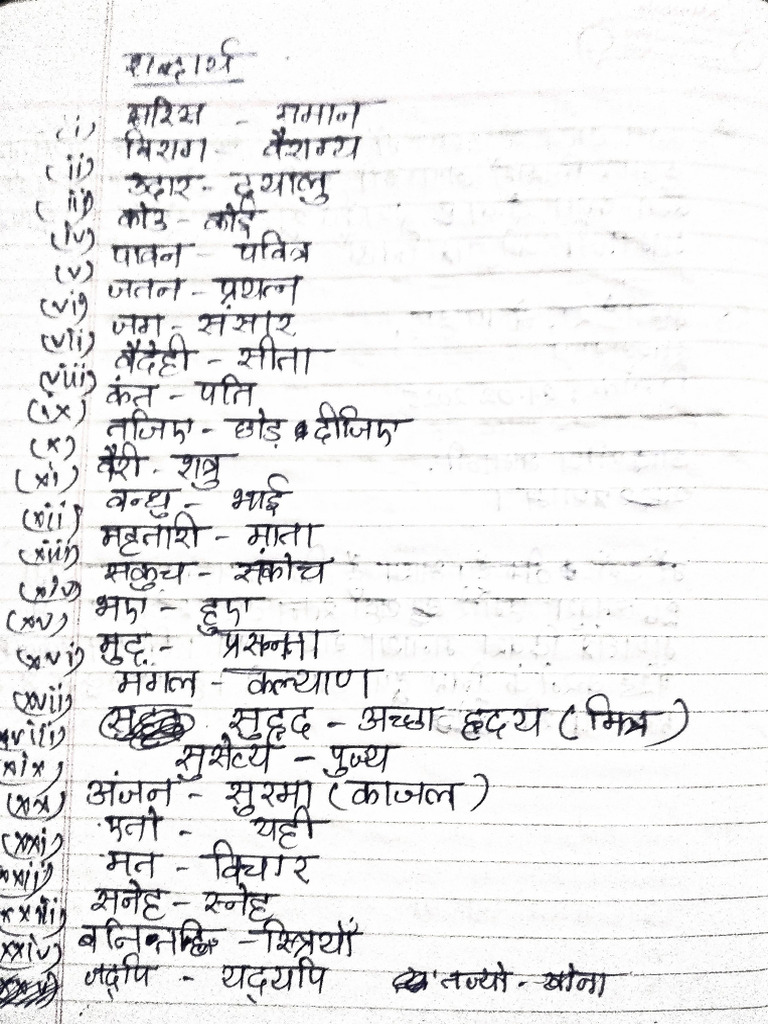 शब्दार्थ
(i) सरिस - समान
(ii) विराग - वैराग्य
(iii) उदार - दयालु
(iv) कोउ - कोई
(v) पावन - पवित्र
(vi) जतन - प्रयत्न
(vii) जग - संसार
(viii) वैदेही - सीता
(ix) कंत - पति
(x) तजिए - छोड़ दीजिए
(xi) वैरी - शत्रु
(xii) बन्धु - भाई
(xiii) महतारी - माता
(xiv) सकुच - संकोच
(xv) भए - हुए
(xvi) मुद - प्रसन्नता
(xvii) मंगल - कल्याण
(xviii) सुहृद - अच्छा हृदय (मित्र)
(xix) सुसेव्य - पुज्य
(xx) अंजन - सुरमा (काजल)
(xxi) एतो - यही
(xxii) मत - विचार
(xxiii) सनेह - स्नेह
(xxiv) - स्त्रियों
जद्पि - यद्यपि तज्यो -